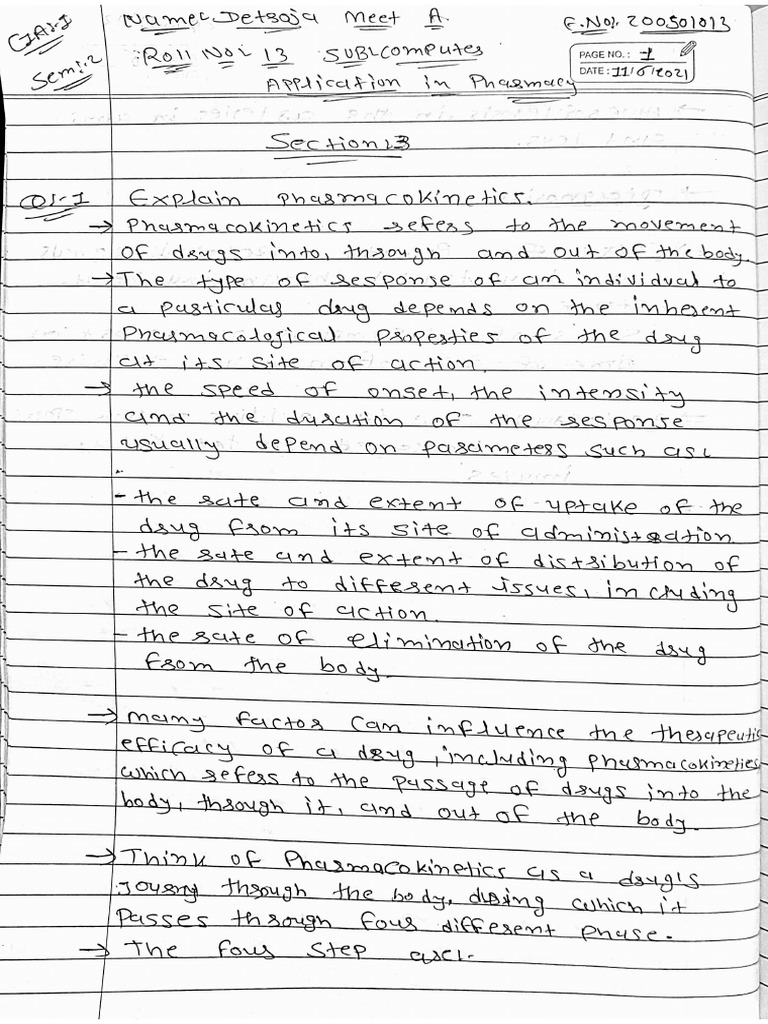 CIA:-I
Sem:-2
Name:- Detroja Meet A.
E.No:- 200501013
Roll No:- 13 SUB:- Computer
PAGE NO.: 1
DATE: 11/6/2021
Application in Pharmacy
Section:-3
Q:-1 Explain Pharmacokinetics.
→ Pharmacokinetics refers to the movement
of drugs into, through and out of the body.
→ The type of response of an individual to
a particular drug depends on the inherent
Pharmacological Properties of the drug
at its site of action.
→ the speed of onset, the intensity
and the duration of the response
usually depend on parameters such as:-
- the rate and extent of uptake of the
drug from its site of administration.
- the rate and extent of distribution of
the drug to different issues, including
the site of action.
- the rate of elimination of the drug
from the body.
→ many factor can influence the therapeutic
efficacy of a drug, including pharmacokinetics,
which refers to the passage of drugs into the
body, through it, and out of the body.
→ Think of Pharmacokinetics as a drug's
Journy through the body, during which it
Passes through four different phase.
→ The four step are:-